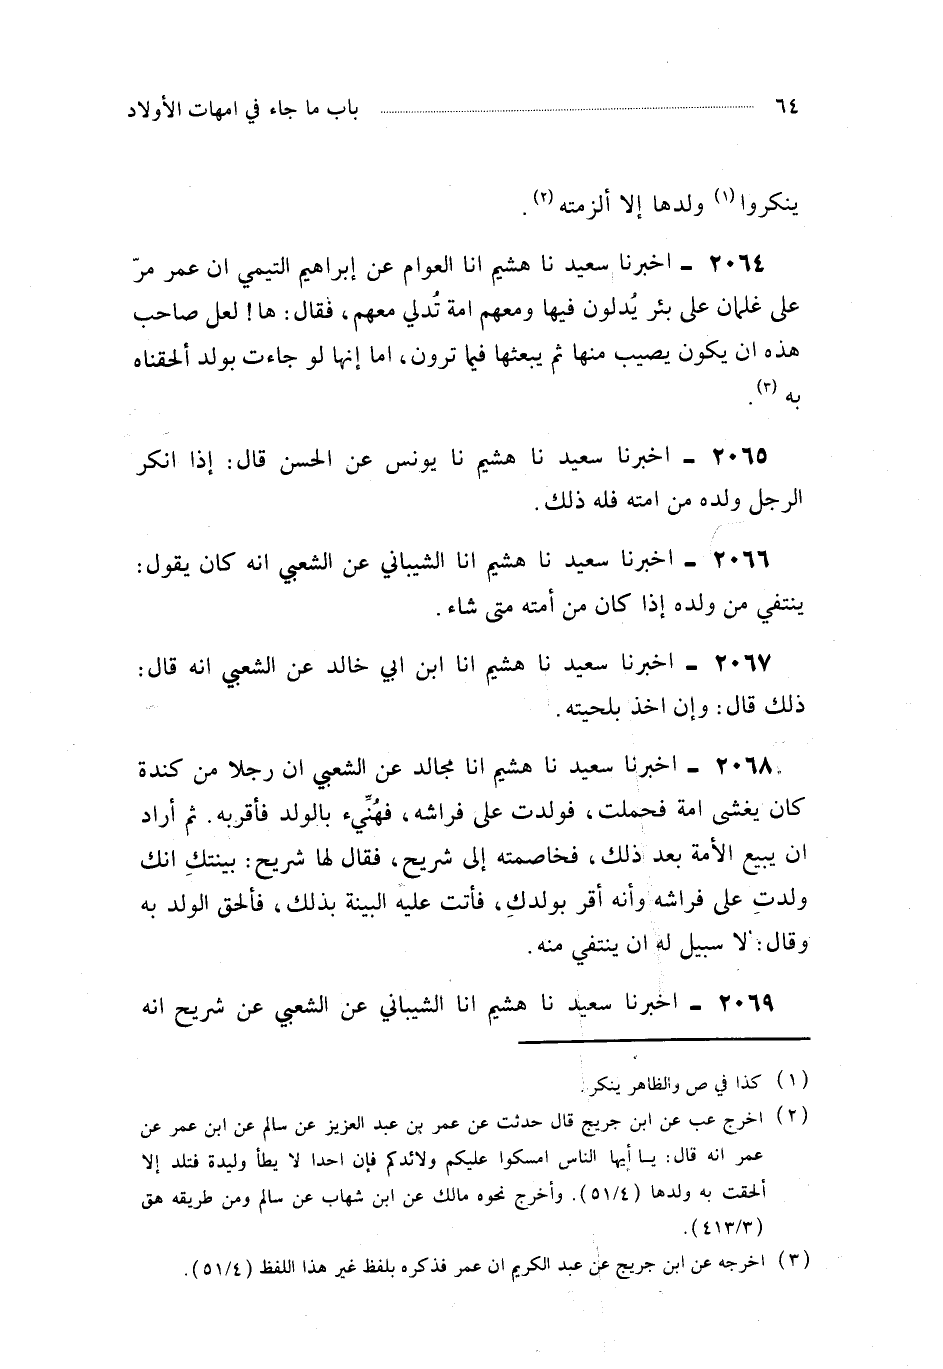 ٦٤ باب ما جاء في امهات الأولاد
ينكروا (١) ولدها إلا ألزمته (٢) .
٢٠٦٤ ـ اخبرنا سعيد نا هشيم انا العوام عن إبراهيم التيمي ان عمر مرّ
على غلمان على بئر يُدلون فيها ومعهم امة تُدلي معهم، فقال: ها! لعل صاحب
هذه ان يكون يصيب منها ثم يبعثها فيما ترون، اما إنها لو جاءت بولد ألحقناه
به (٣) .
٢٠٦٥ ـ اخبرنا سعيد نا هشيم نا يونس عن الحسن قال: إذا انكر
الرجل ولده من امته فله ذلك .
٢٠٦٦ ـ اخبرنا سعيد نا هشيم انا الشيباني عن الشعبي انه كان يقول:
ينتفي من ولده إذا كان من أمته متى شاء .
٢٠٦٧ ـ اخبرنا سعيد نا هشيم انا ابن ابي خالد عن الشعبي انه قال:
ذلك قال: وإن اخذ بلحيته .
٢٠٦٨ ـ اخبرنا سعيد نا هشيم انا مجالد عن الشعبي ان رجلا من كندة
كان يغشى امة فحملت، فولدت على فراشه، فهُنِّيء بالولد فأقربه. ثم أراد
ان يبيع الأمة بعد ذلك، فخاصمته إلى شريح، فقال لها شريح: بينتكِ انك
ولدتِ على فراشه وأنه أقر بولدكِ، فأتت عليه البينة بذلك، فألحق الولد به
وقال: لا سبيل له ان ينتفي منه.
٢٠٦٩ ـ اخبرنا سعيد نا هشيم انا الشيباني عن الشعبي عن شريح انه
(١) كذا في ص والظاهر ينكر.
(٢) اخرج عب عن ابن جريج قال حدثت عن عمر بن عبد العزيز عن سالم عن ابن عمر عن
عمر انه قال: يـا أيها الناس امسكوا عليكم ولائدكم فإن احدا لا يطأ وليدة فتلد إلا
ألحقت به ولدها (٥١/٤). وأخرج نحوه مالك عن ابن شهاب عن سالم ومن طريقه هق
(٤١٣/٣).
(٣) اخرجه عن ابن جريج عن عبد الكريم ان عمر فذكره بلفظ غير هذا اللفظ (٥١/٤).